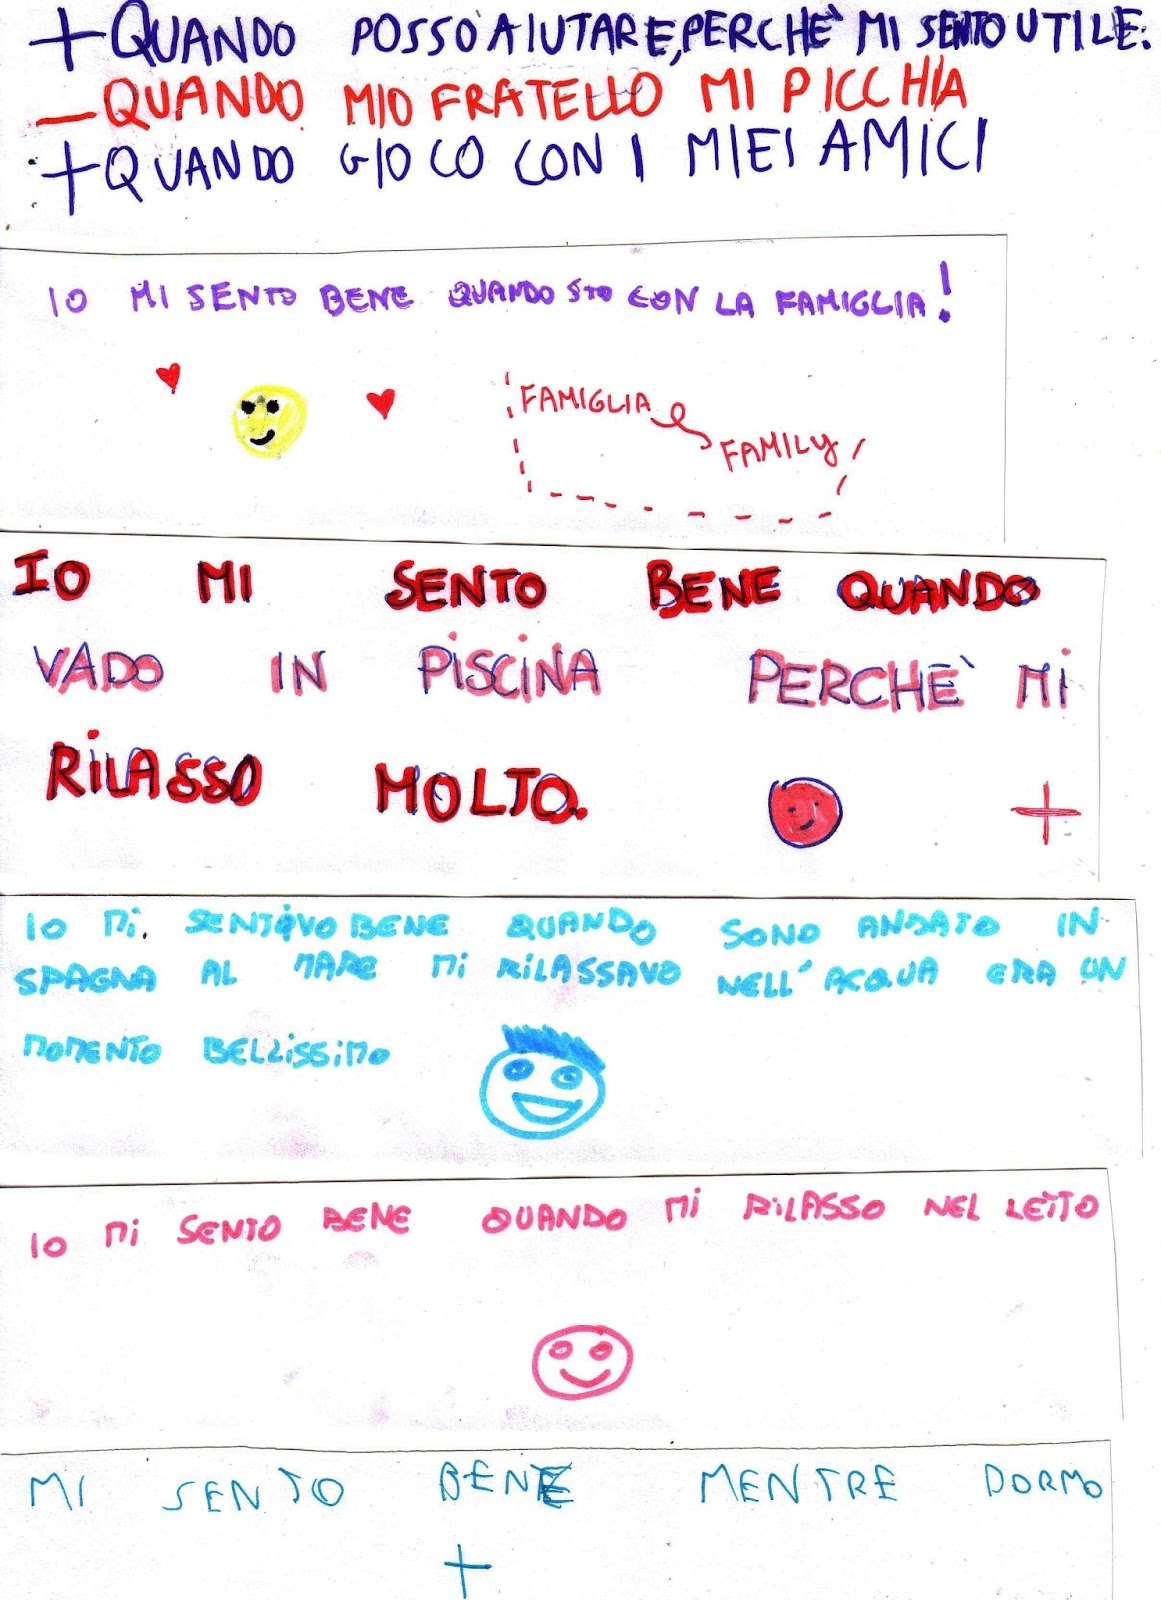 + QUANDO POSSO AIUTARE, PERCHÈ MI SENTO UTILE.
– QUANDO MIO FRATELLO MI PICCHIA
+ QUANDO GIOCO CON I MIEI AMICI
IO MI SENTO BENE QUANDO STO CON LA FAMIGLIA!
FAMIGLIA
FAMILY
IO MI SENTO BENE QUANDO
VADO IN PISCINA PERCHÈ MI
RILASSO MOLTO.
+
IO MI. SENTIVO BENE QUANDO SONO ANDATO IN
SPAGNA AL MARE MI RILASSAVO NELL'ACQUA ERA UN
MOMENTO BELLISSIMO
IO MI SENTO BENE QUANDO MI RILASSO NEL LETTO
MI SENTO BENE MENTRE DORMO
+